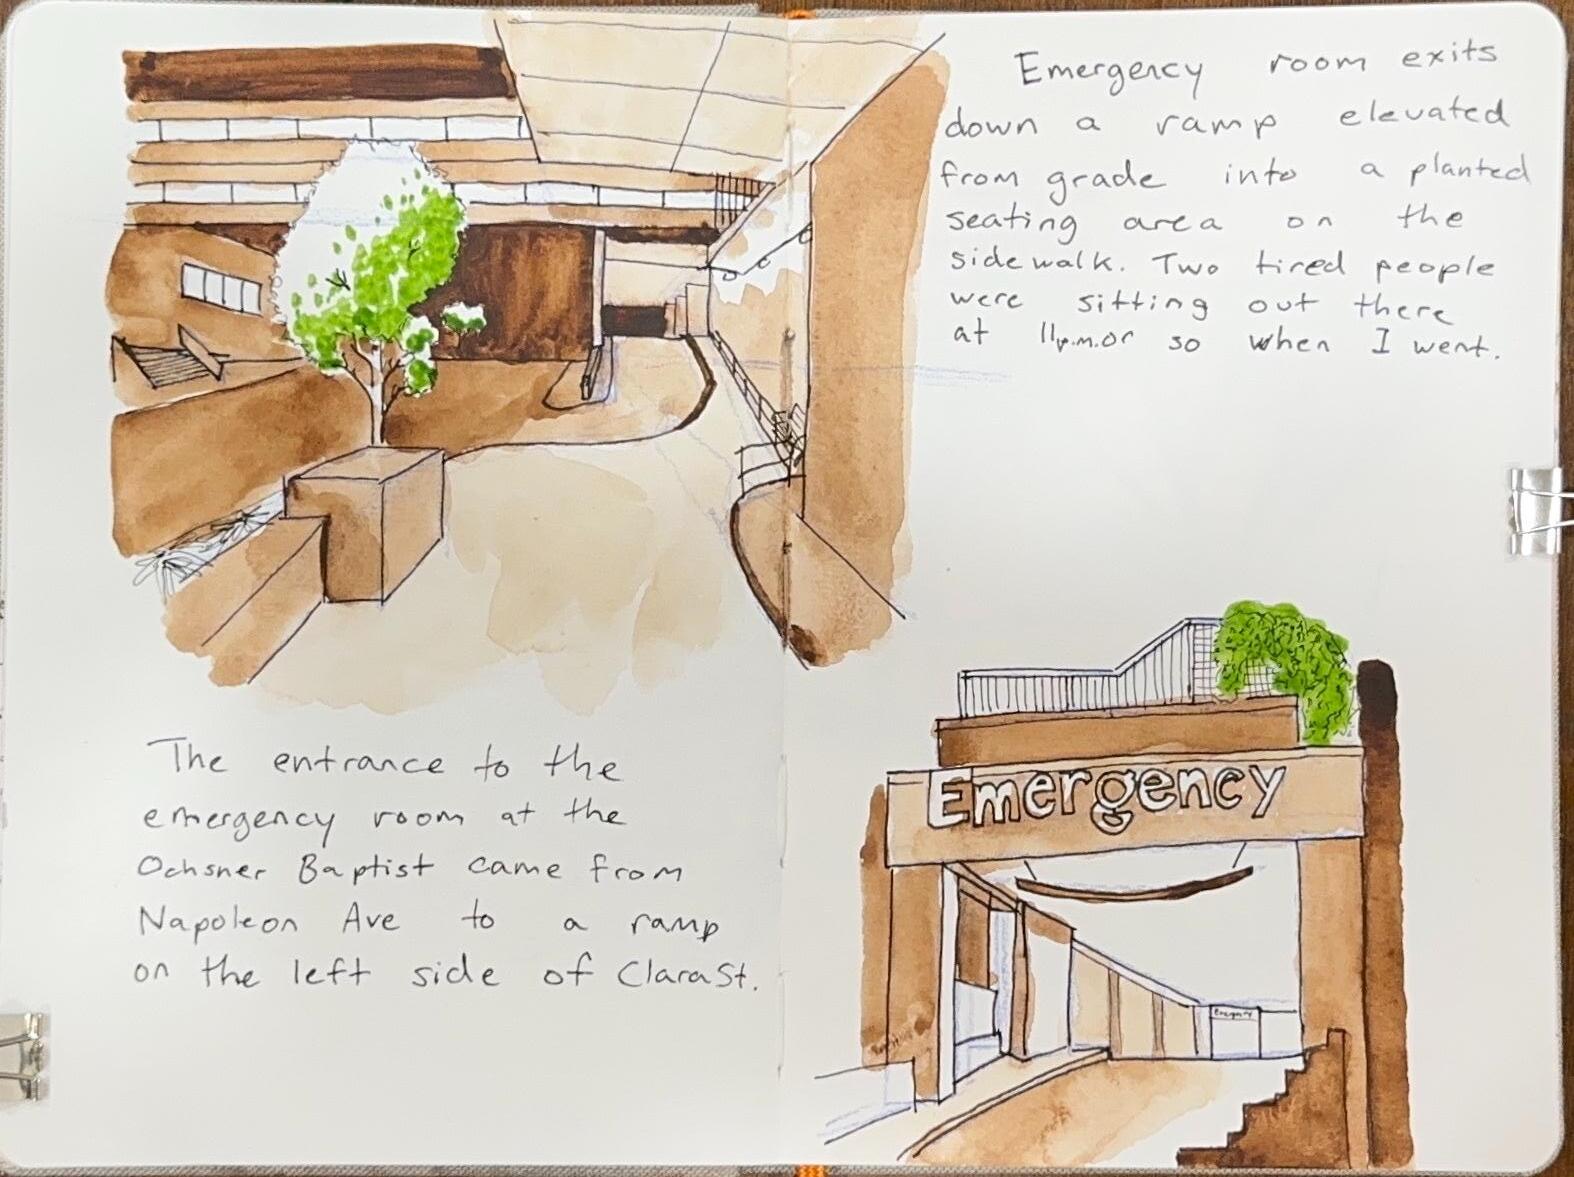 Emergency room exits
down a ramp elevated
from grade into a planted
seating area on the
sidewalk. Two tired people
were sitting out there
at 11p.m. or so when I went.
The entrance to the
emergency room at the
Ochsner Baptist came from
Napoleon Ave to a ramp
on the left side of Clara St.
Emergency
Emergency